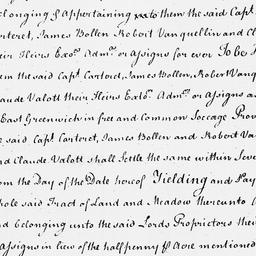 elonging & Appertaining unto them the said Capt.
arteret, James Bollen Robert Vanquellin and Cl
eir Heirs Exo.rs Adm.rs or Assigns for ever To be H
em the said Capt. Carteret, James Bollen, Robert Vanq
laude Valott their Heirs Exto.rs Adm.rs or Assigns as
East Greenwich in free and Common Soccage Prov
e said Capt. Carteret, James Bollen and Robert Van
nd Claude Valott shall Settle the same within Seve
om the Day of the Date hereof Yielding and Pay
hole said Tract of Land and Meadow thereunto A
nd belonging unto the said Lords Proprietors their
Assigns in lieu of the halfpenny ℔ Acre mentioned